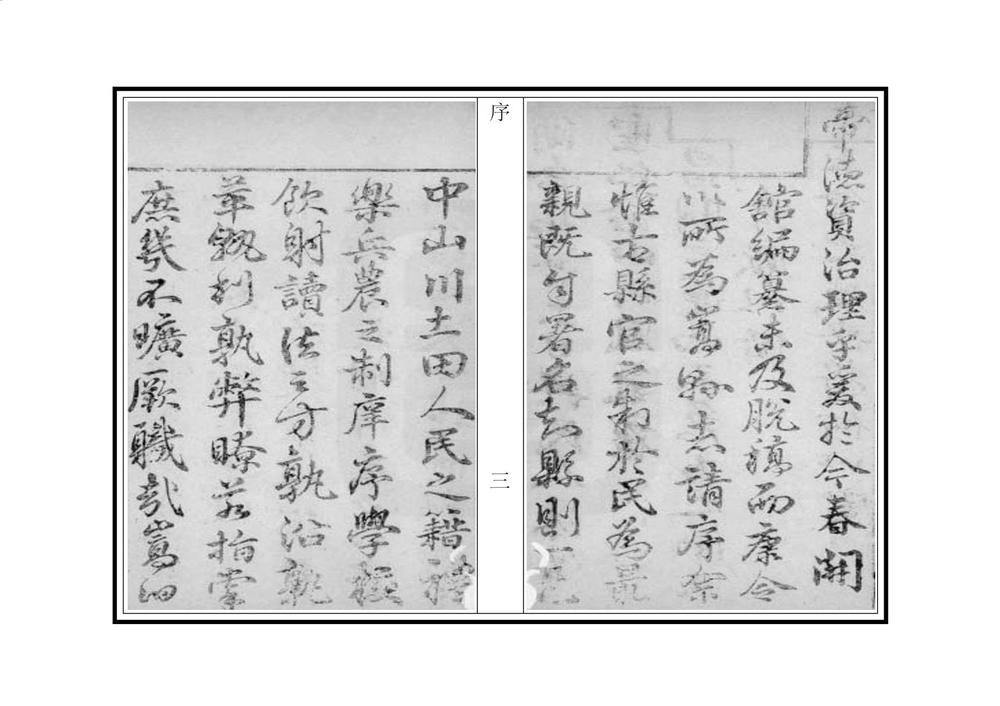 帝德資治理乎爰於今春開
館編纂未及脫稿而康令
以所為嵩縣志請序余
惟古縣官之於民為最
親既自署名知縣則一邑
序
三
中山川土田人民之籍禮
樂兵農之制庠序學校
飲射讀法之方孰沿孰
革孰利孰弊瞭若指掌
庶幾不曠厥職哉嵩